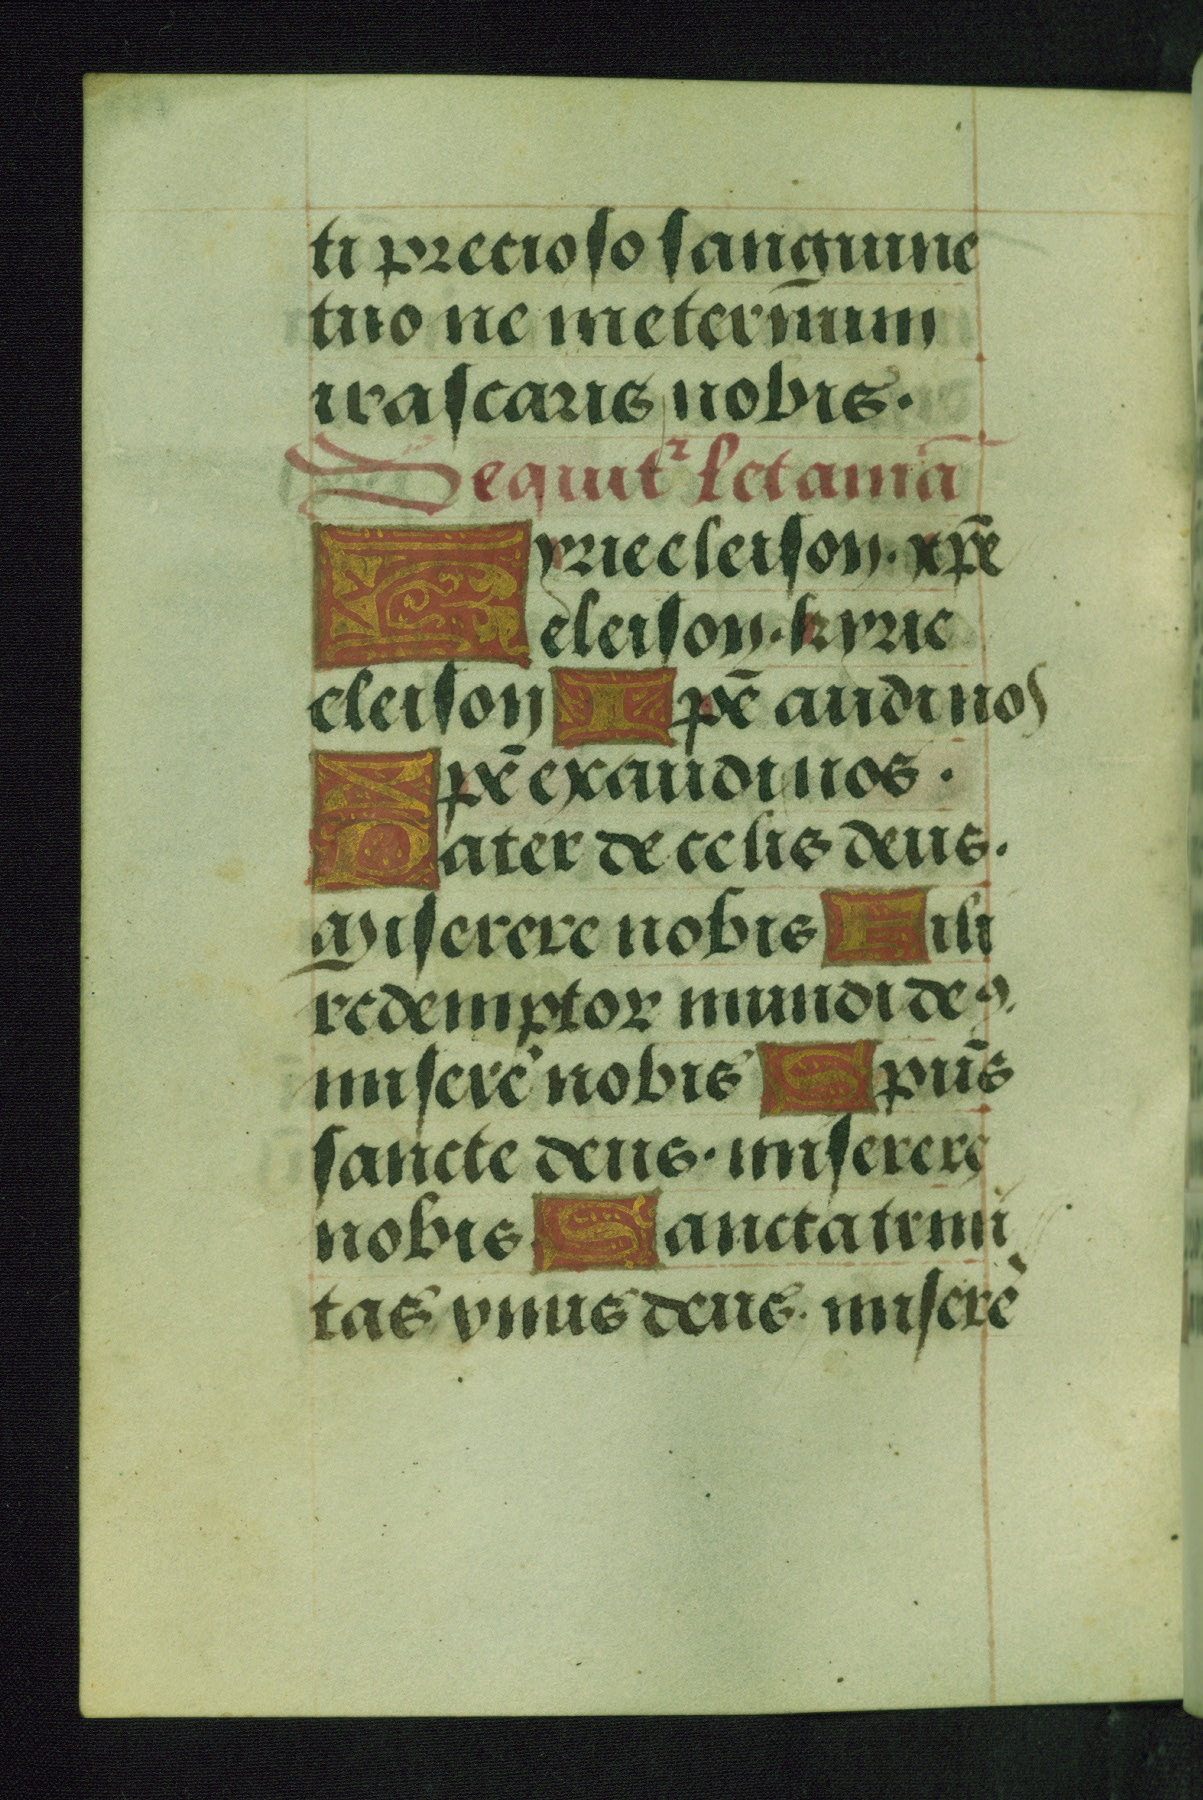 ti precioso sanguine
tuo ne ineter&#772;num
irascaris nobis.
Sequit&#691; letaniā
Kyrieeleison. xp̄e
eleison. kyrie
eleison Xpē audi nos
Xpē exaudi nos.
Pater de celis deus.
Miserere nobis Fili
redemptor mundi deꝰ.
miserē nobis Spūs
sancte deus. miserere
nobis Sancta trini
tas vnus deus. miserē